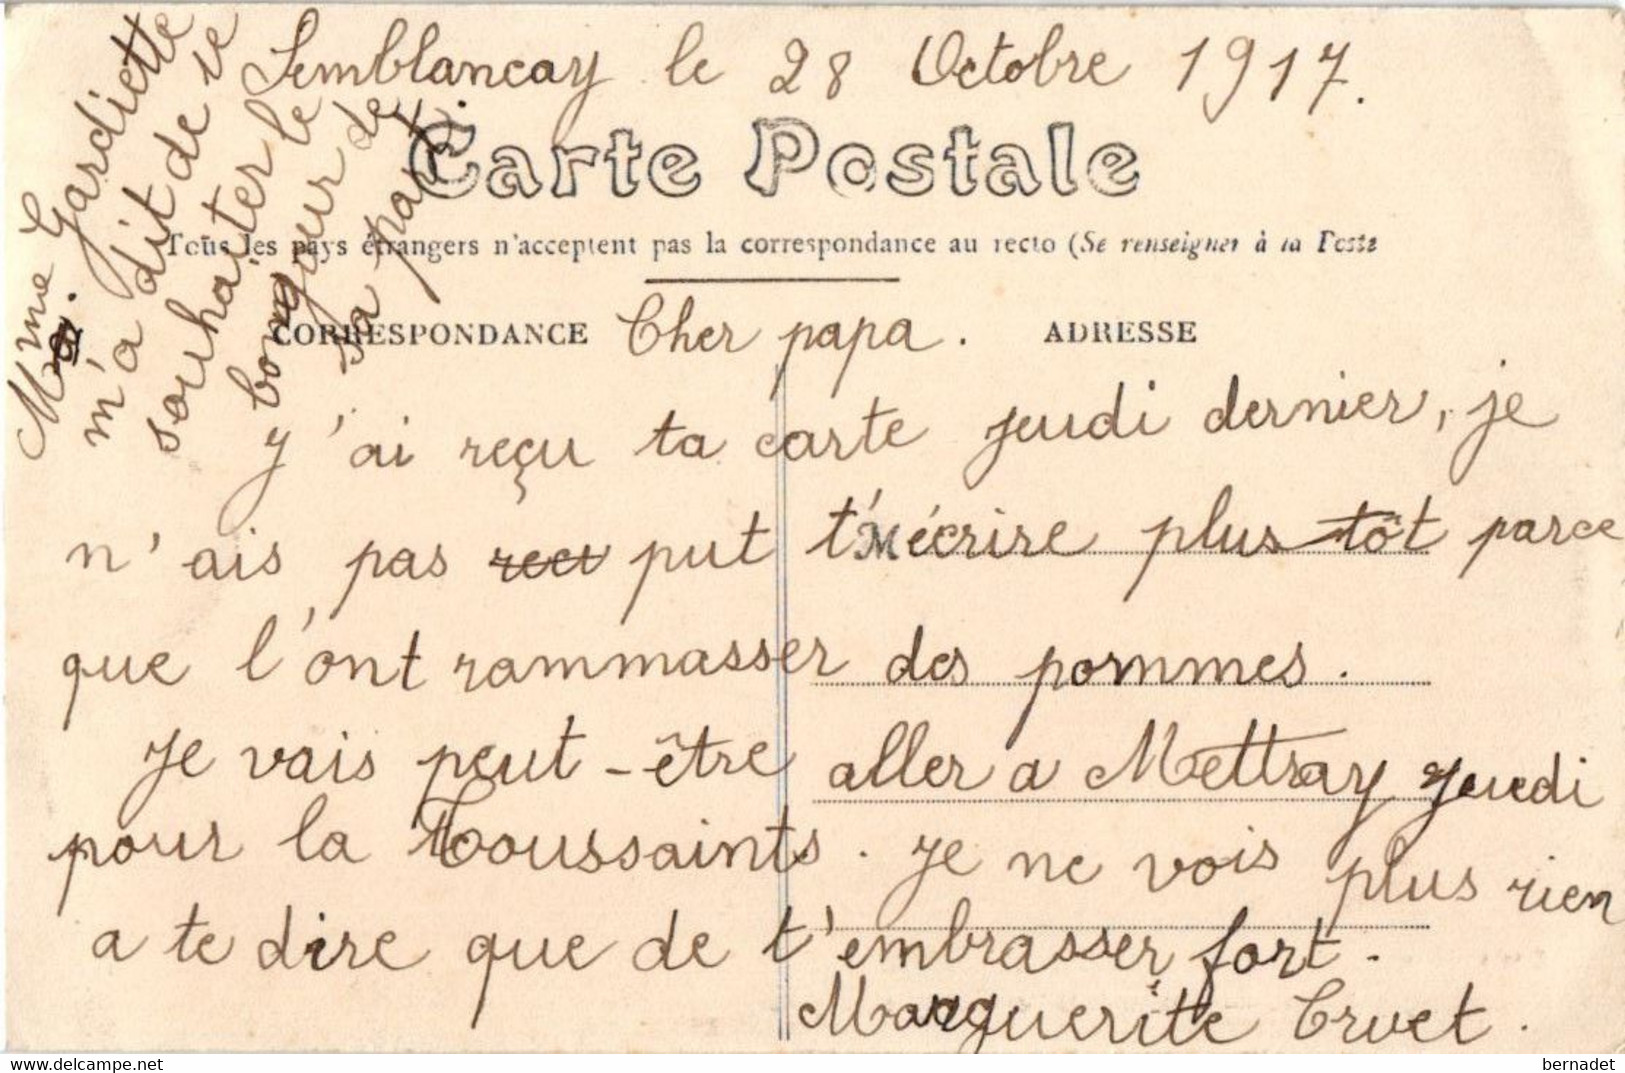 Semblancay le 28 Octobre 1917.
Carte Postale
Tous les pays étrangers n'acceptent pas la correspondance au recto (Se renseigner à la Poste
CORRESPONDANCE
Cher papa.
ADRESSE
y'ai reçu ta carte jeudi dernier, je
n'ais pas put t'écrire plus tôt parce
que l'ont rammasser des pommes.
Je vais peut-être aller a Mettray Jeudi
pour la Toussaints. Je ne vois plus rien
a te dire que de t'embrasser fort.
Marguerite Cruet.
Mme Gardiette
m'a dit de te
souhaiter le
bongour de
sa part.
bernadet